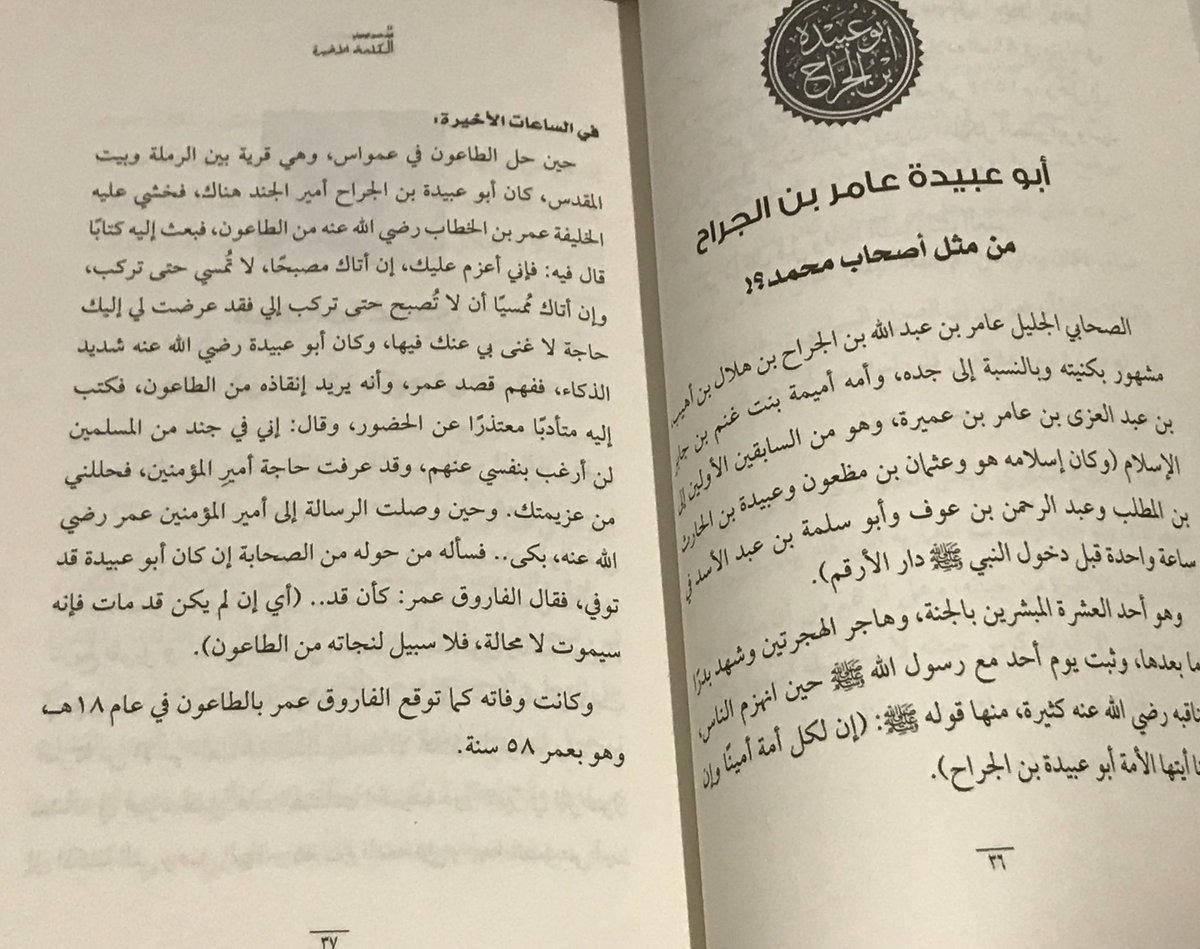 أبو عبيدة
ابن الجراح
أبو عبيدة عامر بن الجراح
من مثل أصحاب محمد؟!
الصحابي الجليل عامر بن عبد الله بن الجراح بن هلال بن أهيب،
مشهور بكنيته وبالنسبة إلى جده، وأمه أميمة بنت غنم بن جابر
بن عبد العزى بن عامر بن عميرة، وهو من السابقين الأولين إلى
الإسلام (وكان إسلامه هو وعثمان بن مظعون وعبيدة بن الحارث
بن المطلب وعبد الرحمن بن عوف وأبو سلمة بن عبد الأسد في
ساعة واحدة قبل دخول النبي ﷺ دار الأرقم).
وهو أحد العشرة المبشرين بالجنة، وهاجر الهجرتين وشهد بدرًا
ما بعدها، وثبت يوم أحد مع رسول الله ﷺ حين انهزم الناس،
ناقبه رضي الله عنه كثيرة، منها قوله ﷺ: (إن لكل أمة أمينًا وإن
نا أيتها الأمة أبو عبيدة بن الجراح).
٣٦
الكلمة الأخيرة
في الساعات الأخيرة:
حين حل الطاعون في عمواس، وهي قرية بين الرملة وبيت
المقدس، كان أبو عبيدة بن الجراح أمير الجند هناك، فخشي عليه
الخليفة عمر بن الخطاب رضي الله عنه من الطاعون، فبعث إليه كتابًا
قال فيه: فإني أعزم عليك، إن أتاك مصبحًا، لا تُمسي حتى تركب،
وإن أتاك مُمسيًا أن لا تُصبح حتى تركب إلي فقد عرضت لي إليك
حاجة لا غنى بي عنك فيها، وكان أبو عبيدة رضي الله عنه شديد
الذكاء، ففهم قصد عمر، وأنه يريد إنقاذه من الطاعون، فكتب
إليه متأدبًا معتذرًا عن الحضور، وقال: إني في جند من المسلمين
لن أرغب بنفسي عنهم، وقد عرفت حاجة أميرِ المؤمنين، فحللني
من عزيمتك. وحين وصلت الرسالة إلى أمير المؤمنين عمر رضي
الله عنه، بكى.. فسأله من حوله من الصحابة إن كان أبو عبيدة قد
توفي، فقال الفاروق عمر: كأن قد.. (أي إن لم يكن قد مات فإنه
سيموت لا محالة، فلا سبيل لنجاته من الطاعون).
وكانت وفاته كما توقع الفاروق عمر بالطاعون في عام ١٨هـ،
وهو بعمر ٥٨ سنة.
٣٧